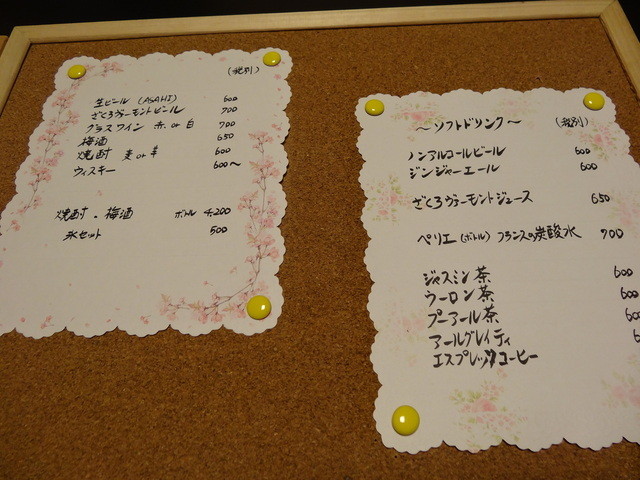 (税別)
生ビール (ASAHI) 600
ざくろヴァーモントビール 700
グラスワイン 赤 or 白 700
梅酒 650
焼酎 麦 or 芋 600
ウィスキー 600〜
焼酎・梅酒 ボトル 4,200
氷セット 500
〜ソフトドリンク〜 (税別)
ノンアルコールビール 600
ジンジャーエール 600
ざくろヴァーモントジュース 650
ペリエ(ボトル) フランスの炭酸水 700
ジャスミン茶 600
ウーロン茶 600
プーアール茶 600
アールグレイティ
エスプレッソコーヒー